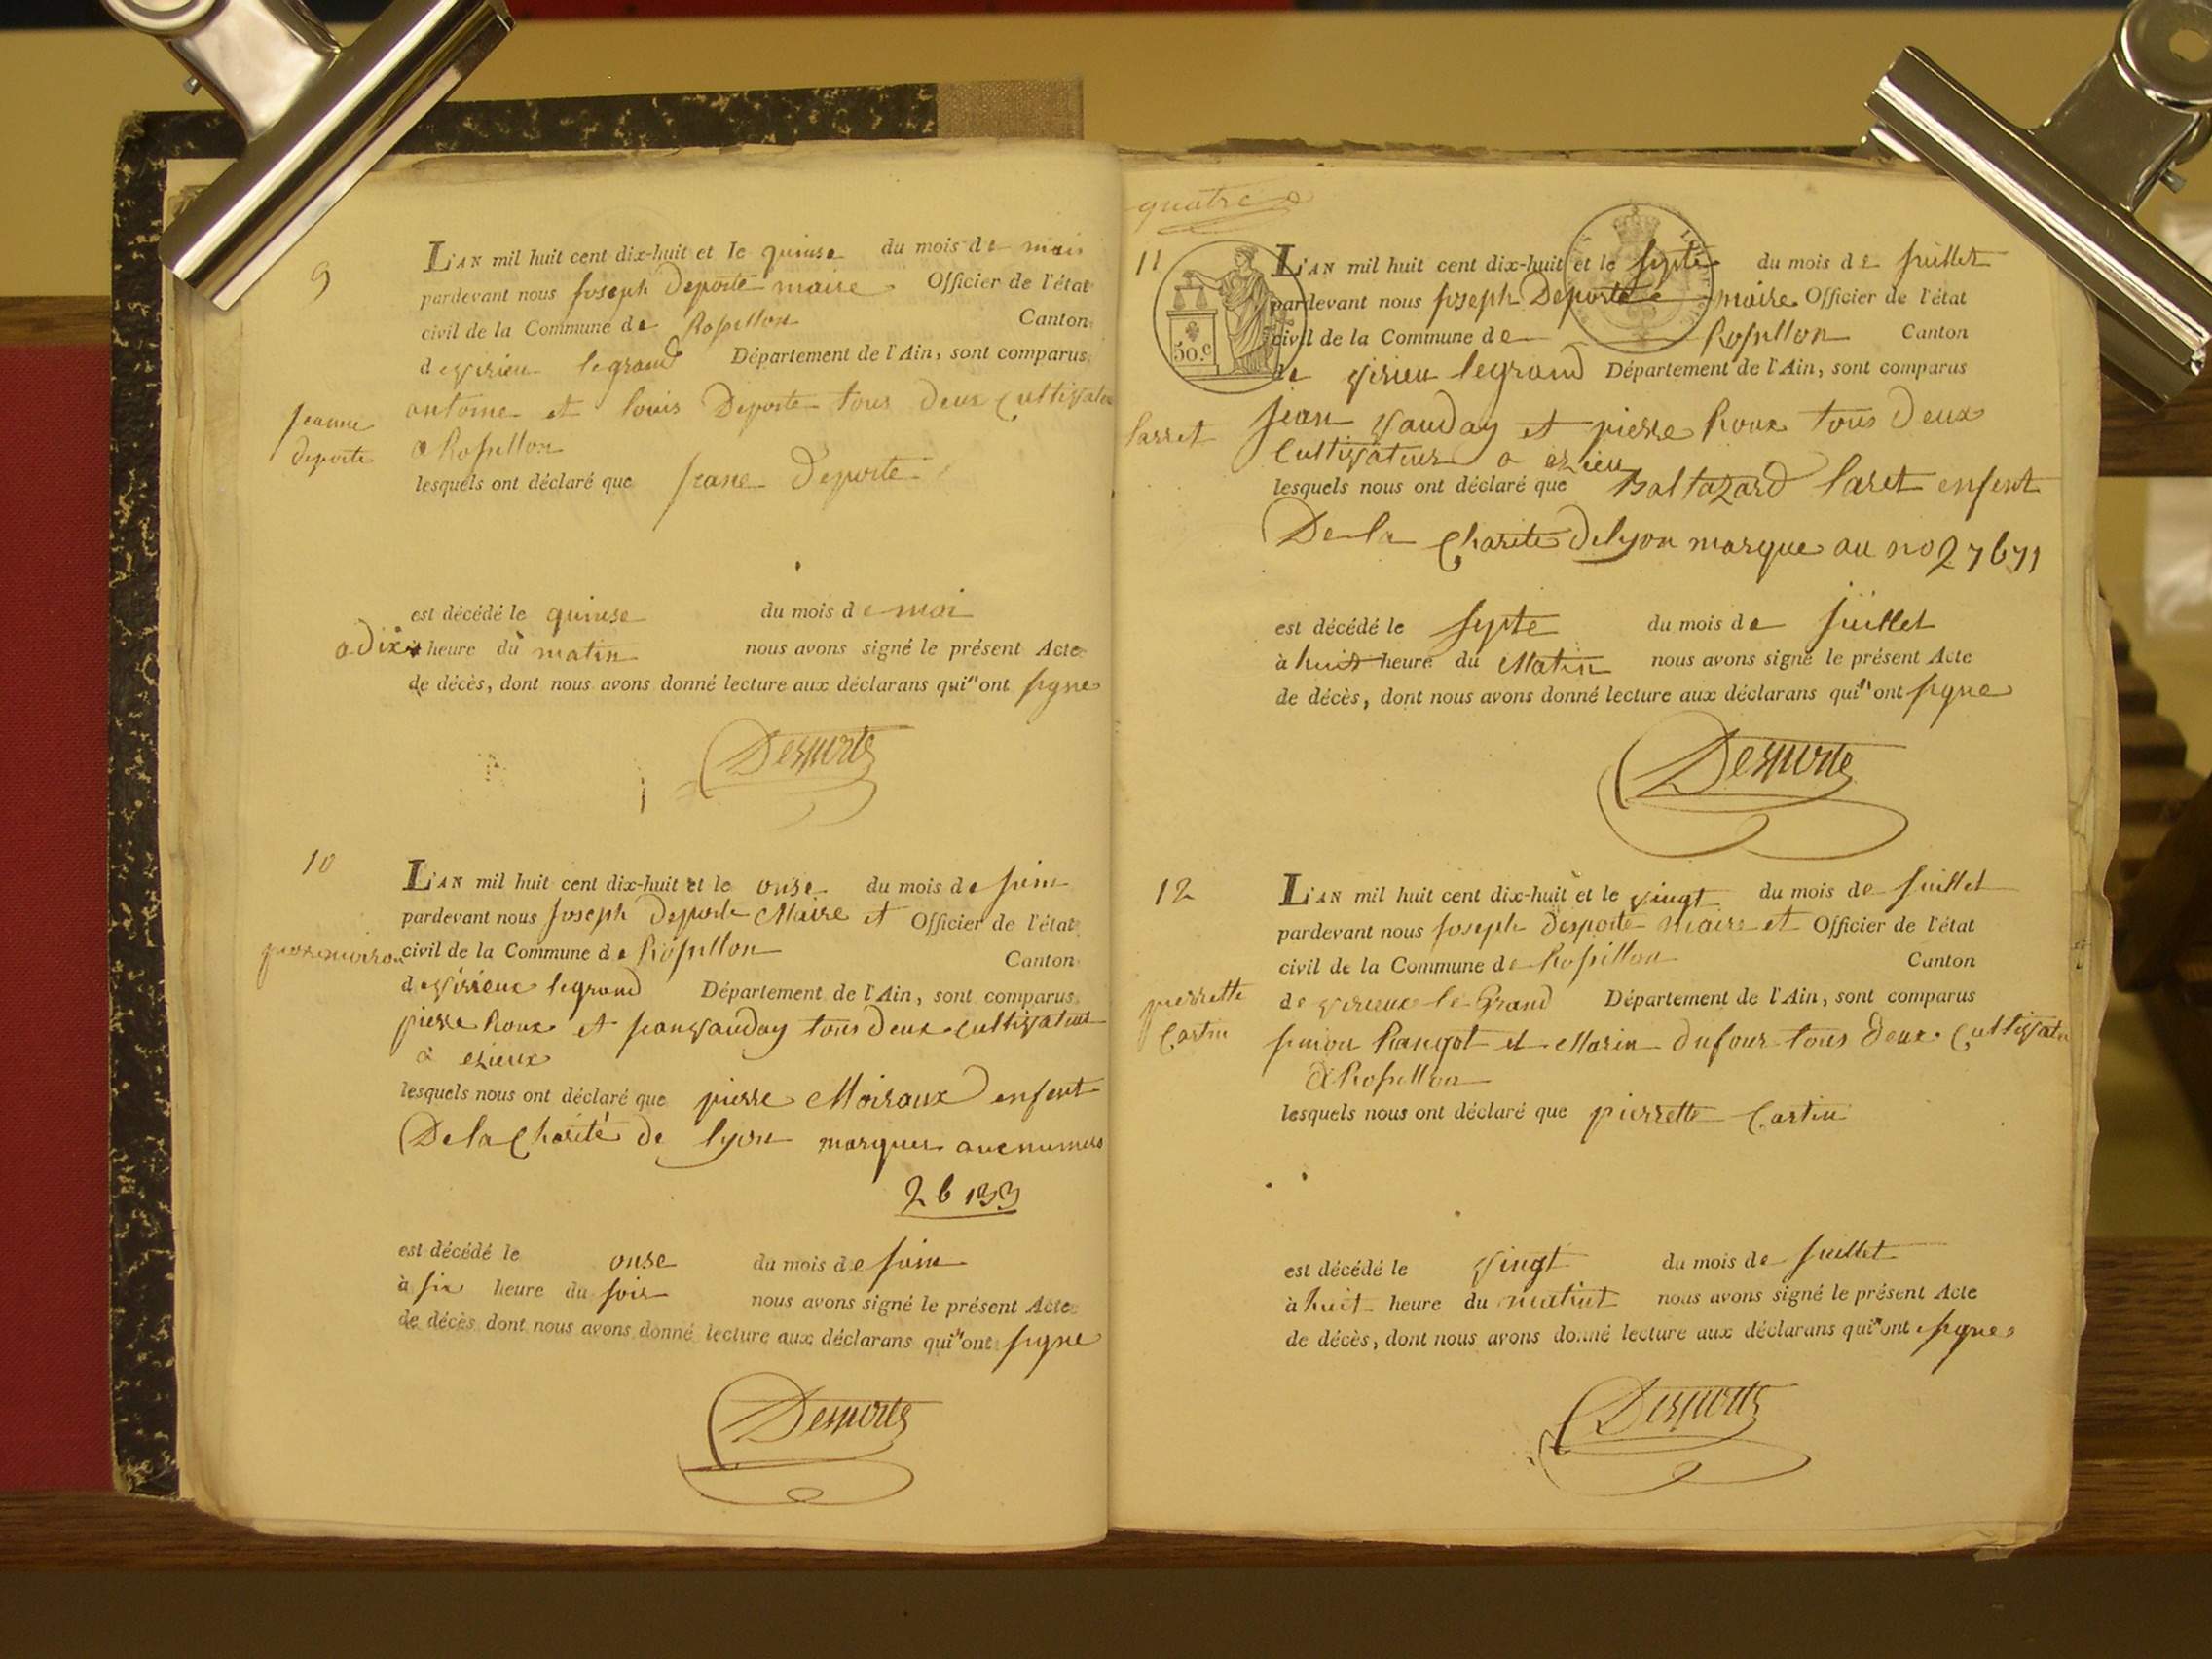 9
L'AN mil huit cent dix-huit et le quinse du mois de mais
pardevant nous joseph Deporte maire Officier de l'état
civil de la Commune de Rossillon Canton
de virieu legrand Département de l'Ain, sont comparus
antoine et louis Deporte tous deux Cultivateu
a Rossillon
Jeanne
deporte
lesquels ont déclaré que Jeane Deporte
est décédé le quinse du mois de moi
a dix heure du matin nous avons signé le présent Acte
de décès, dont nous avons donné lecture aux déclarans qui "ont signe
Desporte
10
L'AN mil huit cent dix-huit et le onse du mois de juin
pardevant nous Joseph Deporte Maire et Officier de l'état
civil de la Commune de Rossillon Canton
de virieux legrand Département de l'Ain, sont comparus
pierre Roux et jean vauday tous deux cultivateur
à ezieux
lesquels nous ont déclaré que pierre Moiroux enfent
De la Charité de lyon marquer au numero
26133
est décédé le onse du mois de juin
à six heure du soir nous avons signé le présent Acte
de décès dont nous avons donné lecture aux déclarans qui "ont signe
Desporte
quatre
11
50.c
L'AN mil huit cent dix-huit et le sypte du mois de juillet
pardevant nous joseph Deporte maire Officier de l'état
civil de la Commune de Rossillon Canton
de virieu legrand Département de l'Ain, sont comparus
Jean Vauday et pierre Roux tous Deux
Cultivateur a ezieu
larret
lesquels nous ont déclaré que Baltazard laret enfent
De la Charite de lyon marque au no 27671
est décédé le sypte du mois de juillet
à huit heure du Matin nous avons signé le présent Acte
de décès, dont nous avons donné lecture aux déclarans qui "ont signe
Desporte
12
L'AN mil huit cent dix-huit et le vingt du mois de juillet
pardevant nous joseph Desporte maire et Officier de l'état
civil de la Commune de Rossillon Canton
de virieux le Grand Département de l'Ain, sont comparus
pierrette
Cartin
simon Rangot et Marin Dufour tous deux Cultivateu
a Rossillon
lesquels nous ont déclaré que pierrette Cartin
est décédé le vingt du mois de juillet
à huit heure du matint nous avons signé le présent Acte
de décès, dont nous avons donné lecture aux déclarans qui "ont signe
Desporte